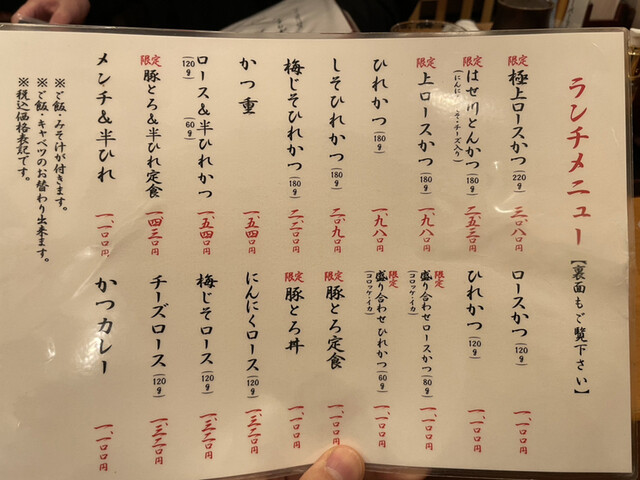 ランチメニュー【裏面もご覧下さい】
限定 極上ロースかつ(220g) 三、〇八〇円
限定 はせ川とんかつ(180g) 二、五三〇円
上ロースかつ(180g) 一、九八〇円
限定
ひれかつ(180g) 一、九八〇円
しそひれかつ(180g) 二、〇九〇円
梅じそひれかつ(180g) 二、二〇〇円
かつ重 一、五四〇円
ロース&半ひれかつ(120g)(60g) 一、五四〇円
限定 豚とろ&半ひれ定食 一、四三〇円
メンチ&半ひれ 一、一〇〇円
ロースかつ(120g) 一、一〇〇円
ひれかつ(120g) 一、一〇〇円
限定 盛り合わせロースかつ(80g)(コロッケ・イカ) 一、一〇〇円
限定 盛り合わせひれかつ(60g)(コロッケ・イカ) 一、一〇〇円
限定 豚とろ定食 一、一〇〇円
限定 豚とろ丼 一、一〇〇円
にんにくロース(120g) 一、三二〇円
梅じそロース(120g) 一、三二〇円
チーズロース(120g) 一、三二〇円
かつカレー 一、一〇〇円
※ご飯・みそ汁が付きます。
※ご飯・キャベツのお替わり出来ます。
※税込価格表記です。